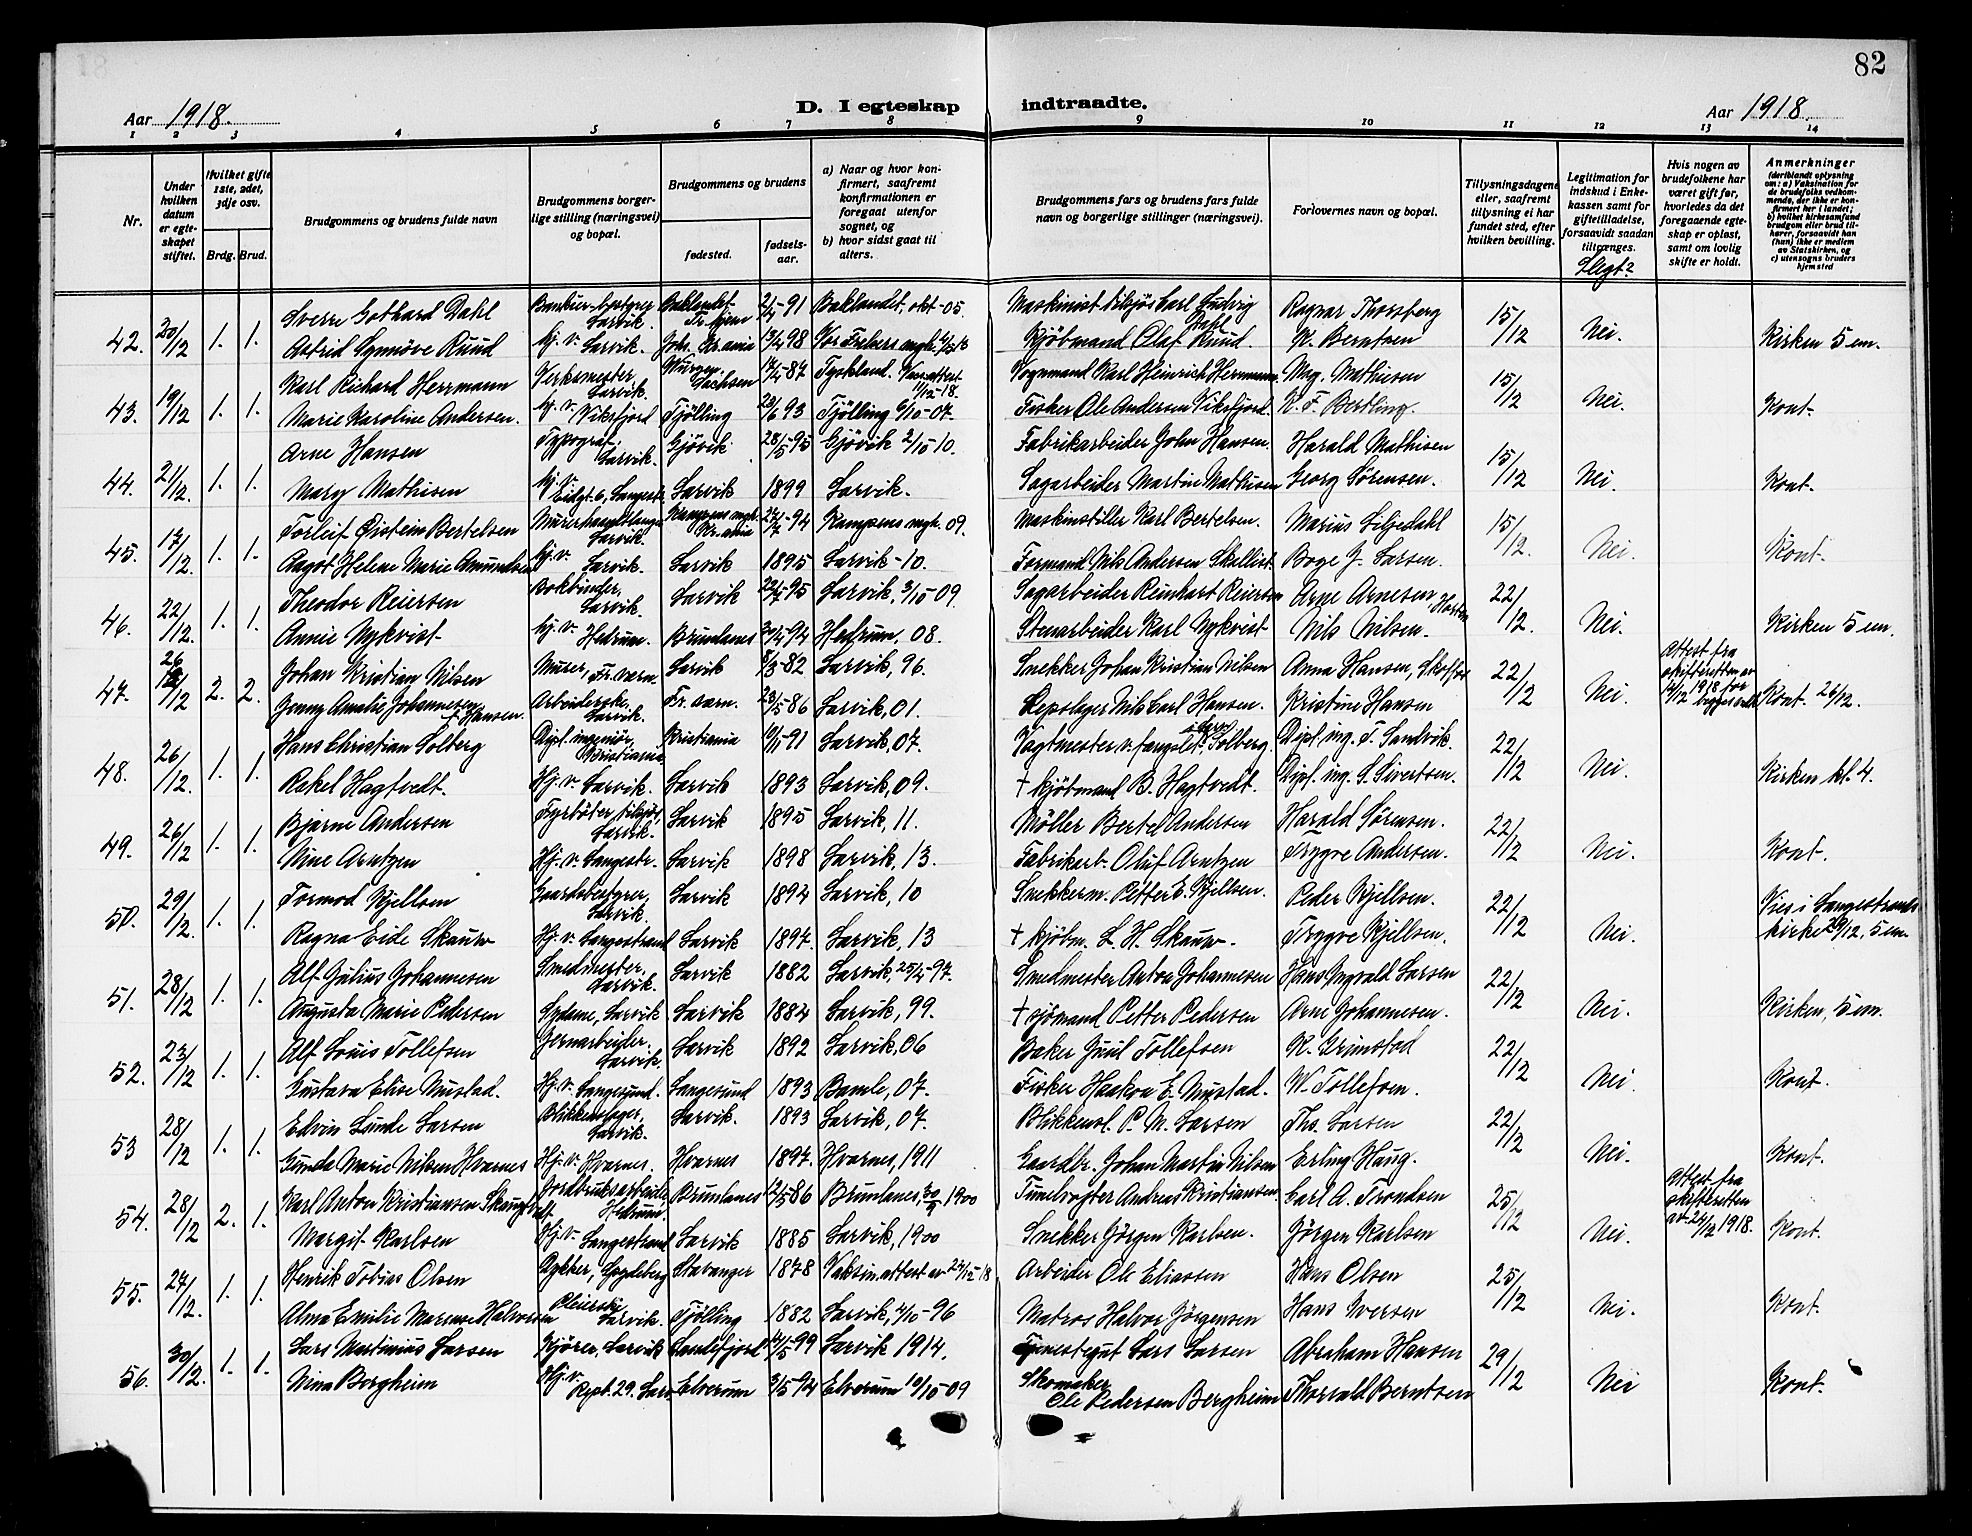 82
Aar 1918.
D. I egteskap indtraadte.
Aar 1918.
1 2 3 4 5 6 7 8 9 10 11 12 13 14
Nr.
Under hvilken datum er egteskapet stiftet.
Hvilket gifte 1ste, 2det, 3dje osv.
Brdg. Brud.
Brudgommens og brudens fulde navn
Brudgommens borgerlige stilling (næringsvei) og bopæl.
Brudgommens og brudens
fødested.
fødselsaar.
a) Naar og hvor konfirmert, saafremt konfirmationen er foregaat utenfor sognet, og
b) hvor sidst gaat til alters.
Brudgommens fars og brudens fars fulde navn og borgerlige stillinger (næringsvei).
Forlovernes navn og bopæl.
Tillysningsdagene eller, saafremt tillysning ei har fundet sted, efter hvilken bevilling.
Legitimation for indskud i Enkekassen samt for giftetilladelse, forsaavidt saadan tiltrænges.
Slegt?
Hvis nogen av brudefolkene har været gift før, hvorledes da det foregaaende egteskap er opløst, samt om lovlig skifte er holdt.
Anmerkninger (deriblandt oplysning om: a) Vaksination for de brudefolks vedkommende, der ikke er konfirmert her i landet; b) hvilket kirkesamfund brudgom eller brud tilhører, forsaavidt han (hun) ikke er medlem av Statskirken, og c) utensogns bruders hjemsted
42. 20/12 1. 1. Sverre Gothard Dahl Larvik. Baklandet Tr.hjem 2/4-91 Baklandet, okt-05. Maskinist Carl Ludvig Dahl Ragnar Thorsberg 15/12 Nei. Kirken 5 em.
Astrid Synnöve Ruud Hj. v. Larvik. Joh. Kr.ania 13/4 98 Vor Frelsers mgh. Kjöbmand Olaf Ruud. K. Berntsen
43. 19/12 1. 1. Karl Richard Herrmann Verksmester Larvik. Wurzen Sachsen 14/4-87 Tyskland. Vac.attest 11/12-18. Vognmand Karl Heinrich Herrmann Mag. Mathiesen 15/12 Nei. Kont.
Marie Karoline Andersen. Hj. v. Viksfjord Tjölling 23/6 93 Tjölling 6/10-07. Fisker Ole Andersen Viksfjord. K. F. Bertling.
44. 21/12. 1. 1. Arne Hansen Typograf. Larvik. Gjövik. 28/5-95 Gjövik 2/10 10. Fabrikarbeider John Hansen. Harald Mathisen 15/12 Nei. Kont.
Mary Mathisen Hj. v. Eidgt. 6, Langestr. Larvik 1899 Larvik. Sagarbeider Martin Mathisen Georg Sørensen.
45. 17/12. 1. 1. Torleif Øistein Bertelsen Larvik. Kampens mgh. Kr.ania 24/7-94 Kampens mgh. 09. Maskinstiller Karl Bertelsen. Marius Liljedahl 15/12. Nei. Kont.
Aagot Helene Marie Amundsen Hj. v. Larvik. Larvik 1895 Larvik-10. Formand Nils Andersen Skellist. Boge J. Larsen.
46. 22/12. 1. 1. Theodor Reiersen Bokbinder, Larvik. Larvik 22/5-95 Larvik, 3/10-09. Sagarbeider Reinhart Reiersen Arne Arnesen, 22/12. Nei. Kirken 5 em.
Annie Nykvist Hj. v. Hedrum. Brunlanes 20/4-94 Hedrum, 08. Stenarbeider Karl Nykvist Nils Nilsen.
47. 26/12 2. 2. Johan Kristian Nilsen Murer, Fr.værn. Larvik 8/3-82 Larvik, 96. Snekker Johan Kristian Nilsen Anna Hansen, 22/12 Nei. Attest fra skifteretten av 14/12 1918 for begges vedk. Kont. 26/12.
Jenny Amalie Johannesen f. Hansen. Arbeiderske. Larvik. Fr.værn. 23/5-86 Larvik, 01. Repslager Nils Carl Hansen. Kristine Hansen
48. 26/12. 1. 1. Hans Christian Solberg Dipl. ingeniør, Kristiania Kristiania 10/11-91 Larvik, 07. Vagtmester v. fængslet, Solberg. Dipl. ing. F. Sandvik. 22/12 Nei. Kirken kl. 4.
Rakel Hagtvedt. Hj. v. Larvik. Larvik 1893 Larvik, 09. † Kjöbmand B. Hagtvedt. Dipl. ing. S. Sivertsen.
49. 26/12 1. 1. Bjarne Andersen Fyrböter tilsjös, Larvik. Larvik 1895 Larvik, 11. Möller Bertel Andersen Harald Sørensen. 22/12 Nei. Kont.
Nine Arntzen Hj. v. Langestr. Larvik 1898 Larvik, 13. Fabrikarb. Oluf Arntzen Trygve Andersen.
50. 29/12. 1. 1. Tormod Kjellsen Gaardsbestyrer, Larvik. Larvik 1894 Larvik, 10 Snekkerm. Petter E. Kjellsen. Peder Kjellsen. 22/12 Nei. Vies i Langestrands kirke 29/12, 5 em.
Ragna Eide Skauw Hj. v. Langestrand Larvik 1897. Larvik, 13 † Kjöbm. L. H. Skauw. Trygve Kjellsen.
51. 28/12 1. 1. Alf Julius Johannesen Smedmester, Larvik. Larvik 1882 Larvik, 25/4-97. Smedmester Anton Johannesen Hans Ingvald Larsen 22/12 Nei. Kirken, 5 em.
Augusta Marie Pedersen Sydame, Larvik. Larvik 1884 Larvik, 99. † sjömand Petter Pedersen Arne Johannesen.
52. 23/12 1. 1. Alf Louis Tollefsen Jernarbeider. Larvik. Larvik 1892 Larvik, 06 Baker Juul Tollefsen K. Grimstad 22/12 Nei. Kont.
Gustava Elise Mustad. Hj. v. Langesund. Langesund 1893 Bamle, 07. Fisker Haakon E. Mustad. W. Tollefsen.
53 28/12 1. 1. Edvin Lunde Larsen Blikkenslager, Larvik. Larvik. 1893 Larvik, 07. Blikkensl. P. M. Larsen Ths. Larsen 22/12 Nei. Kont.
Gunda Marie Nilsen Hvarnes Hj. v. Hvarnes. Hvarnes 1897. Hvarnes, 1911 Gaardbr. Johan Martin Nilsen Erling Haug.
54. 28/12 2. 1. Karl Anton Kristiansen Jordbruksarbeider Hedrum. Brunlanes 12/5 86 Brunlanes, 30/9 1900 Andreas Kristiansen. Carl A. Trondsen 25/12 Nei. Attest fra skifteretten av 24/12 1918. Kont.
Margit Karlsen Hj. v. Langestrand Larvik 1885 Larvik, 1900 Snekker Jörgen Karlsen. Jörgen Karlsen
55. 27/12. 1. 1. Henrik Tobias Olsen Dykker, Stavanger 1878 Vaksin.attest av 24/12-18 Arbeider Ole Eliassen Hans Olsen 25/12 Nei. Kont.
Alma Emilie Marense Halvorsen Pleierske Larvik. Tjölling 1882 Larvik, 4/10-96 Matros Halvor Jörgensen Hans Iversen
56. 30/12. 1. 1. Lars Martinius Larsen Kjörer, Larvik Sandefjord 14/5-99 Larvik 1914. Lars Larsen Abraham Hansen 29/12 Nei Kont.
Nina Borgheim Hj. v. Repb. 29. Larv. Elverum 3/5-94 Elverum 10/10-09 Skomaker Ole Pedersen Bergheim Thorvald Berntsen